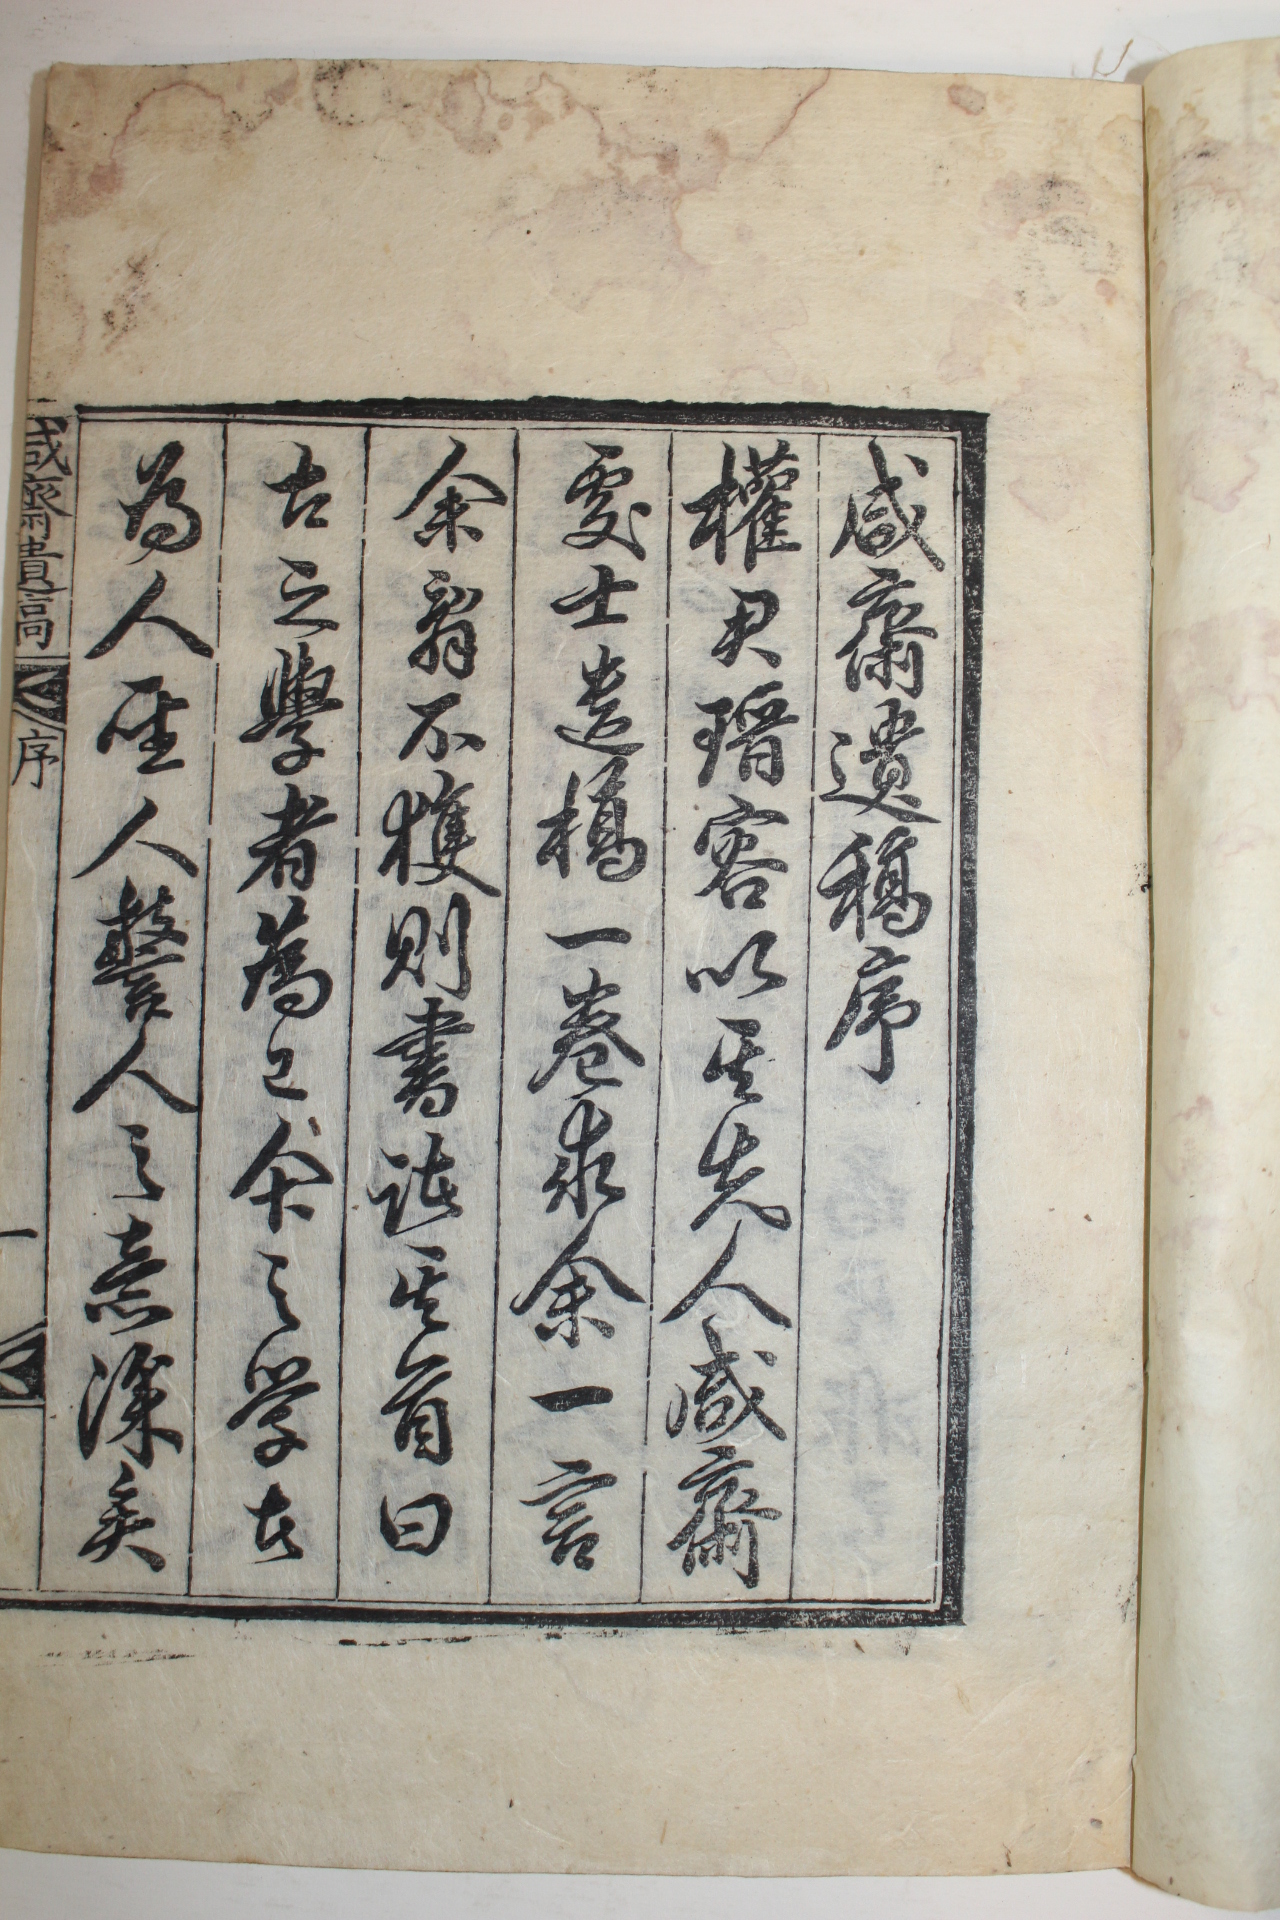 咸齋遺稿序
權君瑨容以其先人咸齋
處士遺槁一卷求余一言
余辭不獲則書諸其首曰
古之學者為己今之學者
為人聖人警人之意深矣
咸齋遺稿 序 一